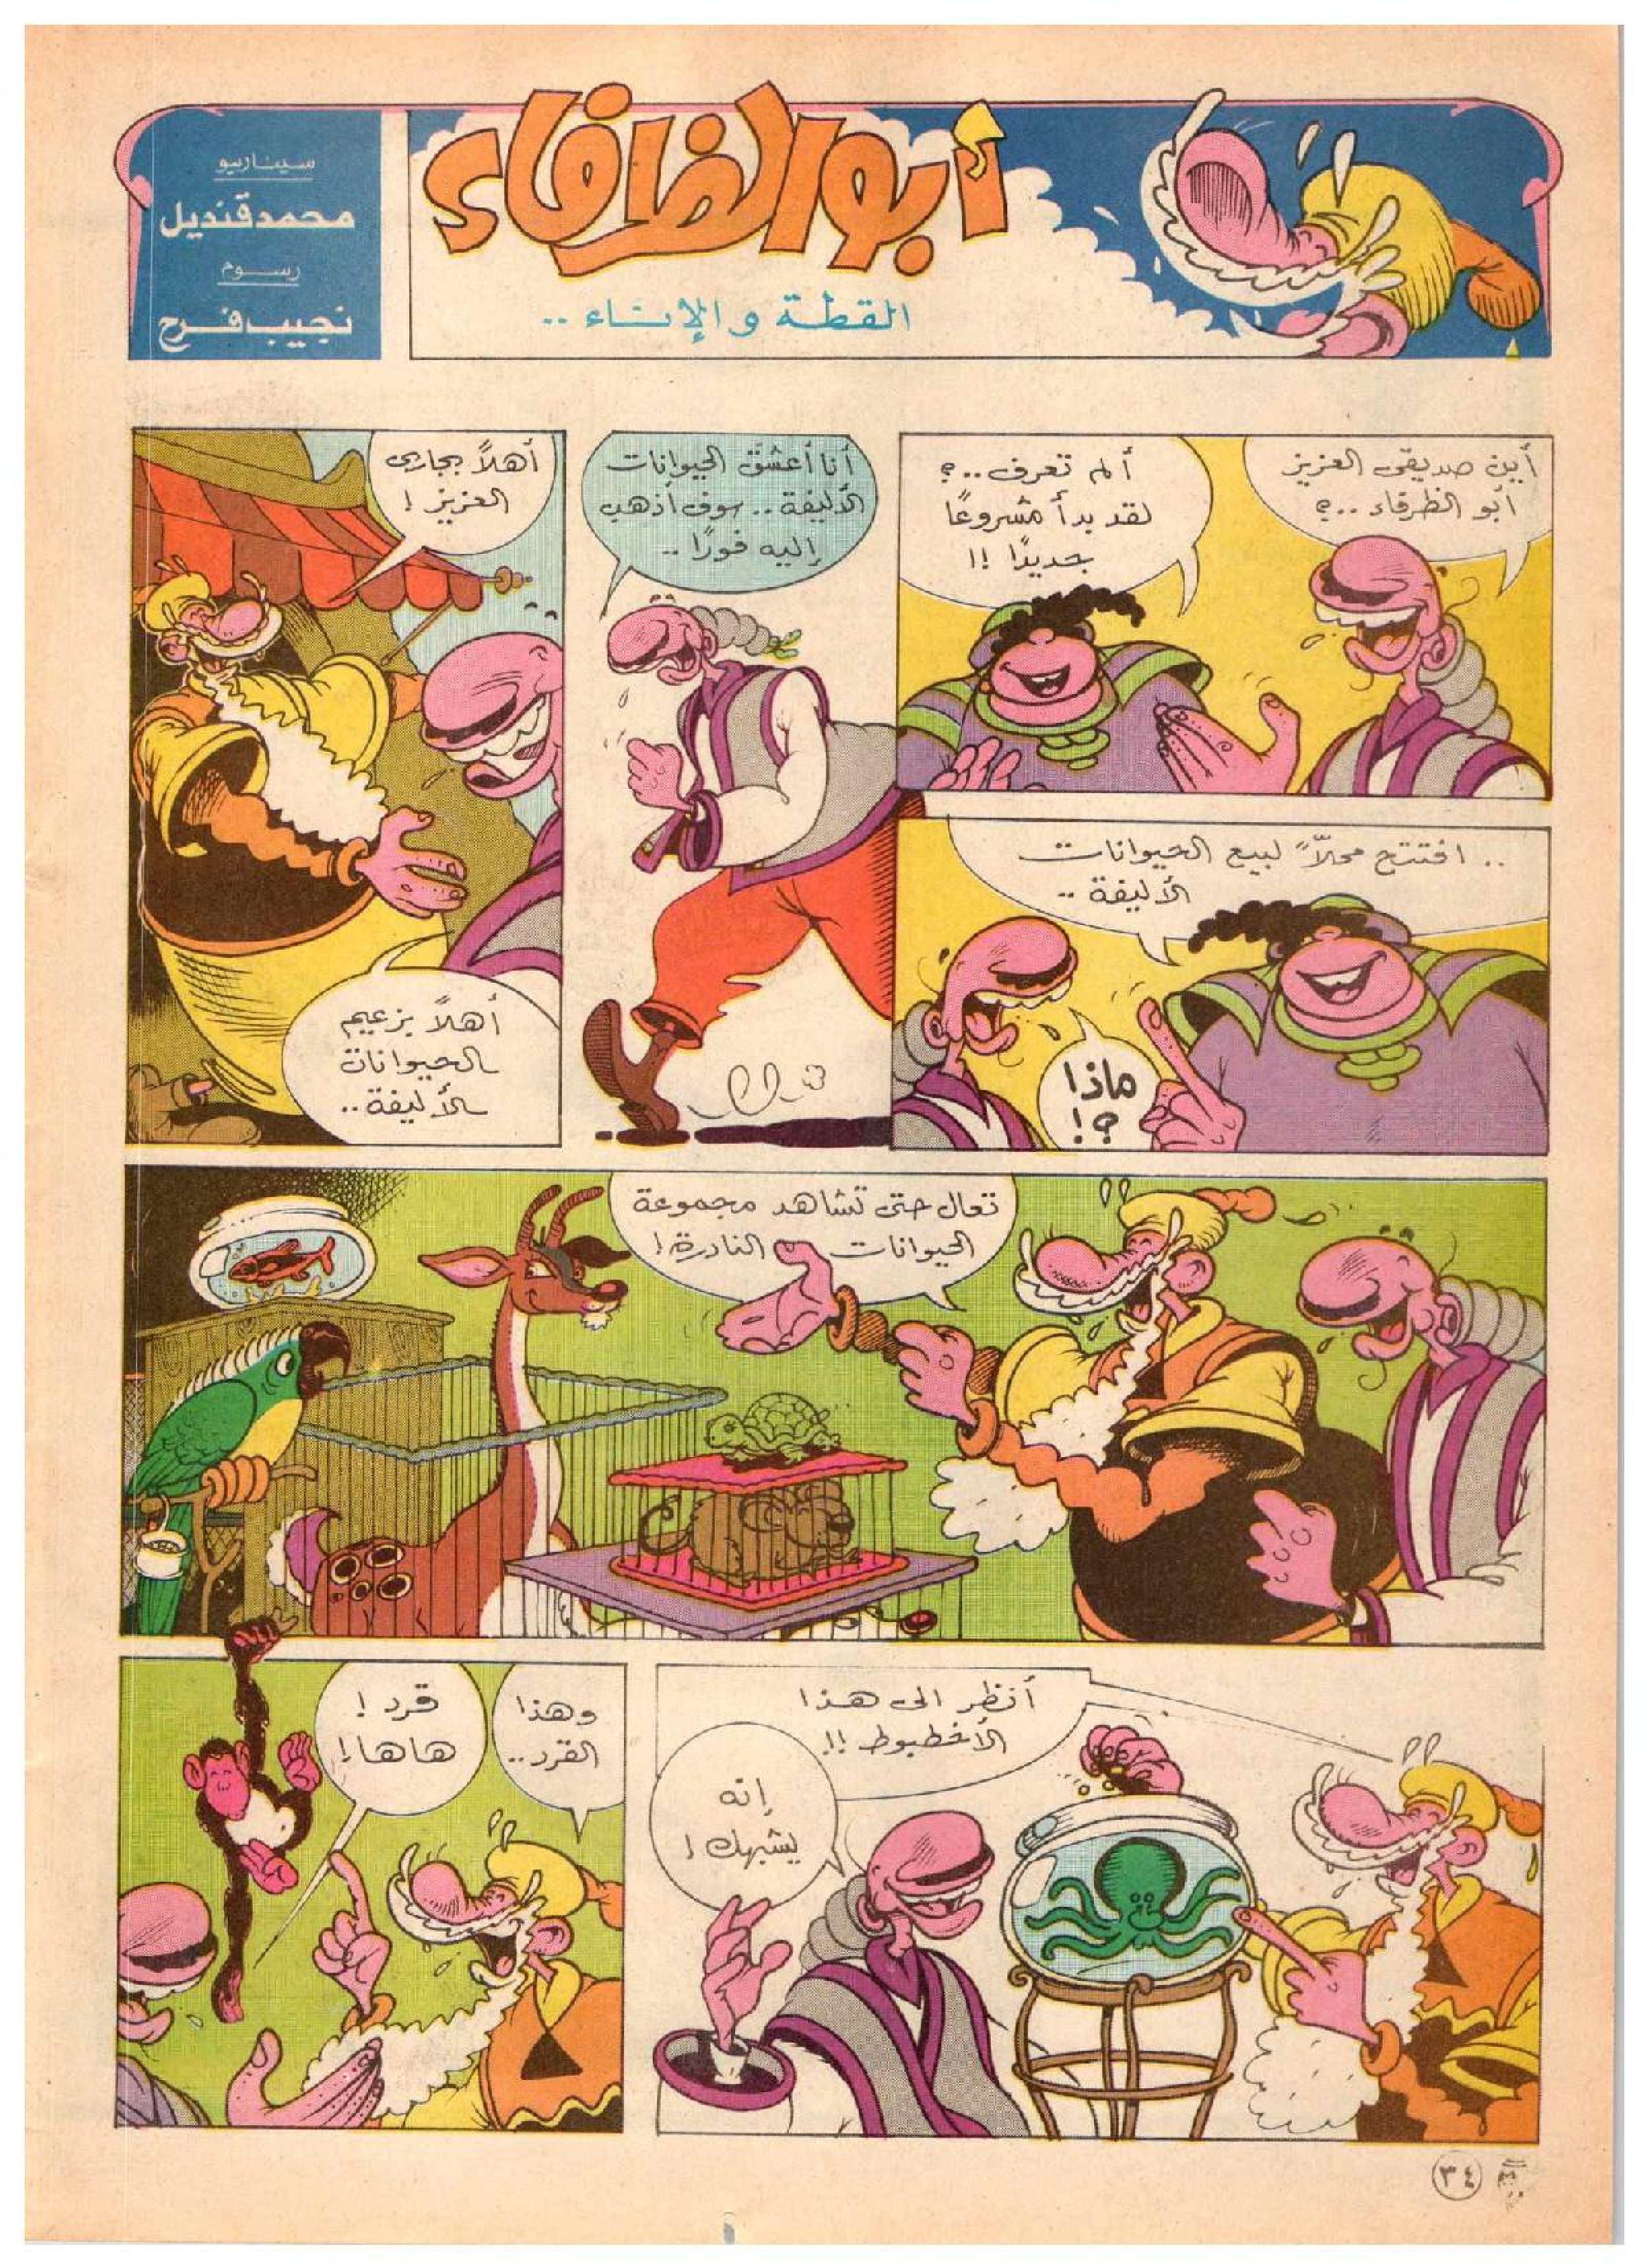 سيناريو
محمد قنديل
رسوم
نجيب فرح
أبو الظرفاء
القطة و الإناء ..
أين صديقى العزيز
أبو الظرفاء ..؟
ألم تعرف ..؟
لقد بدأ مشروعًا
جديدًا !!
.. افتتح محلاً لبيع الحيوانات
الأليفة ..
ماذا
؟!
أنا أعشق الحيوانات
الأليفة .. سوف أذهب
إليه فورًا ..
أهلاً بجارى
العزيز !
أهلاً بزعيم
الحيوانات
الأليفة ..
تعال حتى تشاهد مجموعة
الحيوانات النادرة !
أنظر الى هذا
الأخطبوط !!
إنه
يشبهك !
وهذا
القرد ..
قرد !
هاها !
٣٤